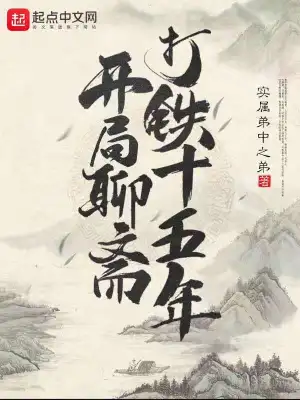 起点
起点中文网
阅文集团旗下网站
实属弟中之弟 著
打铁十五年
开局聊斋